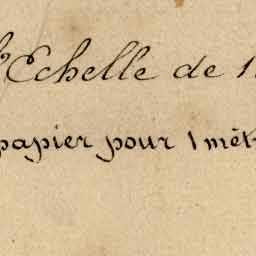 l'Echelle de 1
papier pour 1 mèt